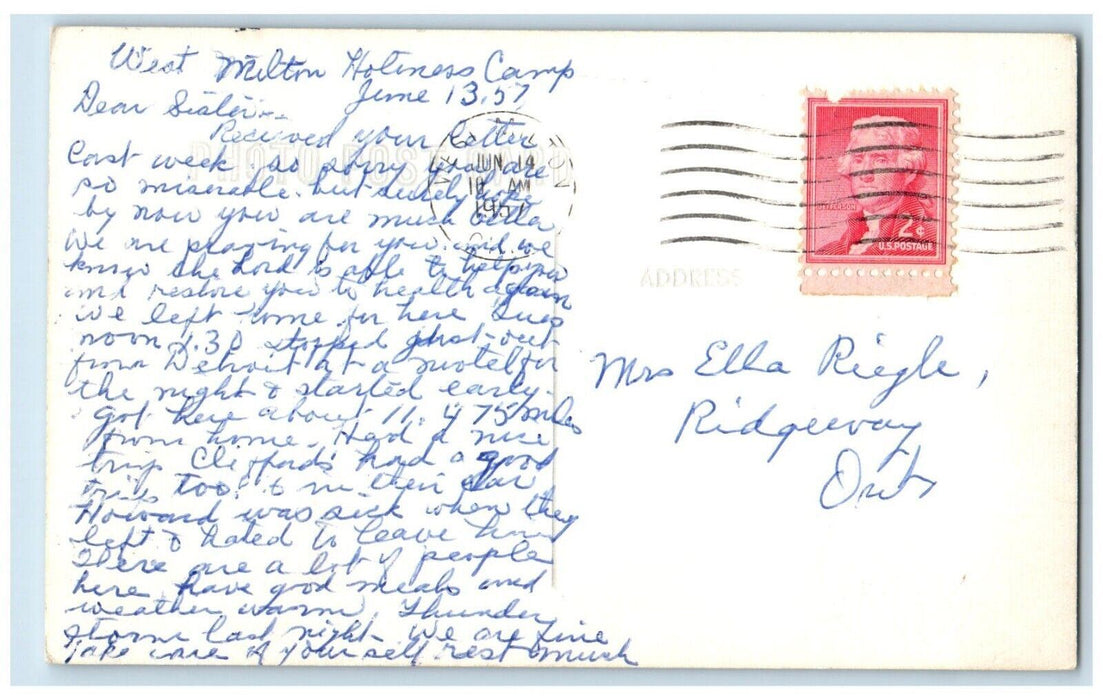 West Milton Holiness Camp
June 13, 57
Dear Sister --
Recieved your letter
last week so sorry you are
so miserable. but surely
by now you are much better
We are praying for you and we
know the Lord is able to help you
and restore you to health again
We left home for here Tues
noon 1.30 stopped just out
from Detroit at a motel for
the night & started early
Got here about 11. 475 miles
from home. Had a nice
trip Cliffords had a good
trip too. in their car
Howard was sick when they
left & hated to leave him
There are a lot of people
here, have good meals and
weather warm, Thunder
storm last night. We are fine
Take care of yourself rest much
PHOTO POST CARD
JUN 14
10 AM
1957
ADDRESS
JEFFERSON
2¢
U.S. POSTAGE
Mrs Ella Riegle,
Ridgeway
Ont